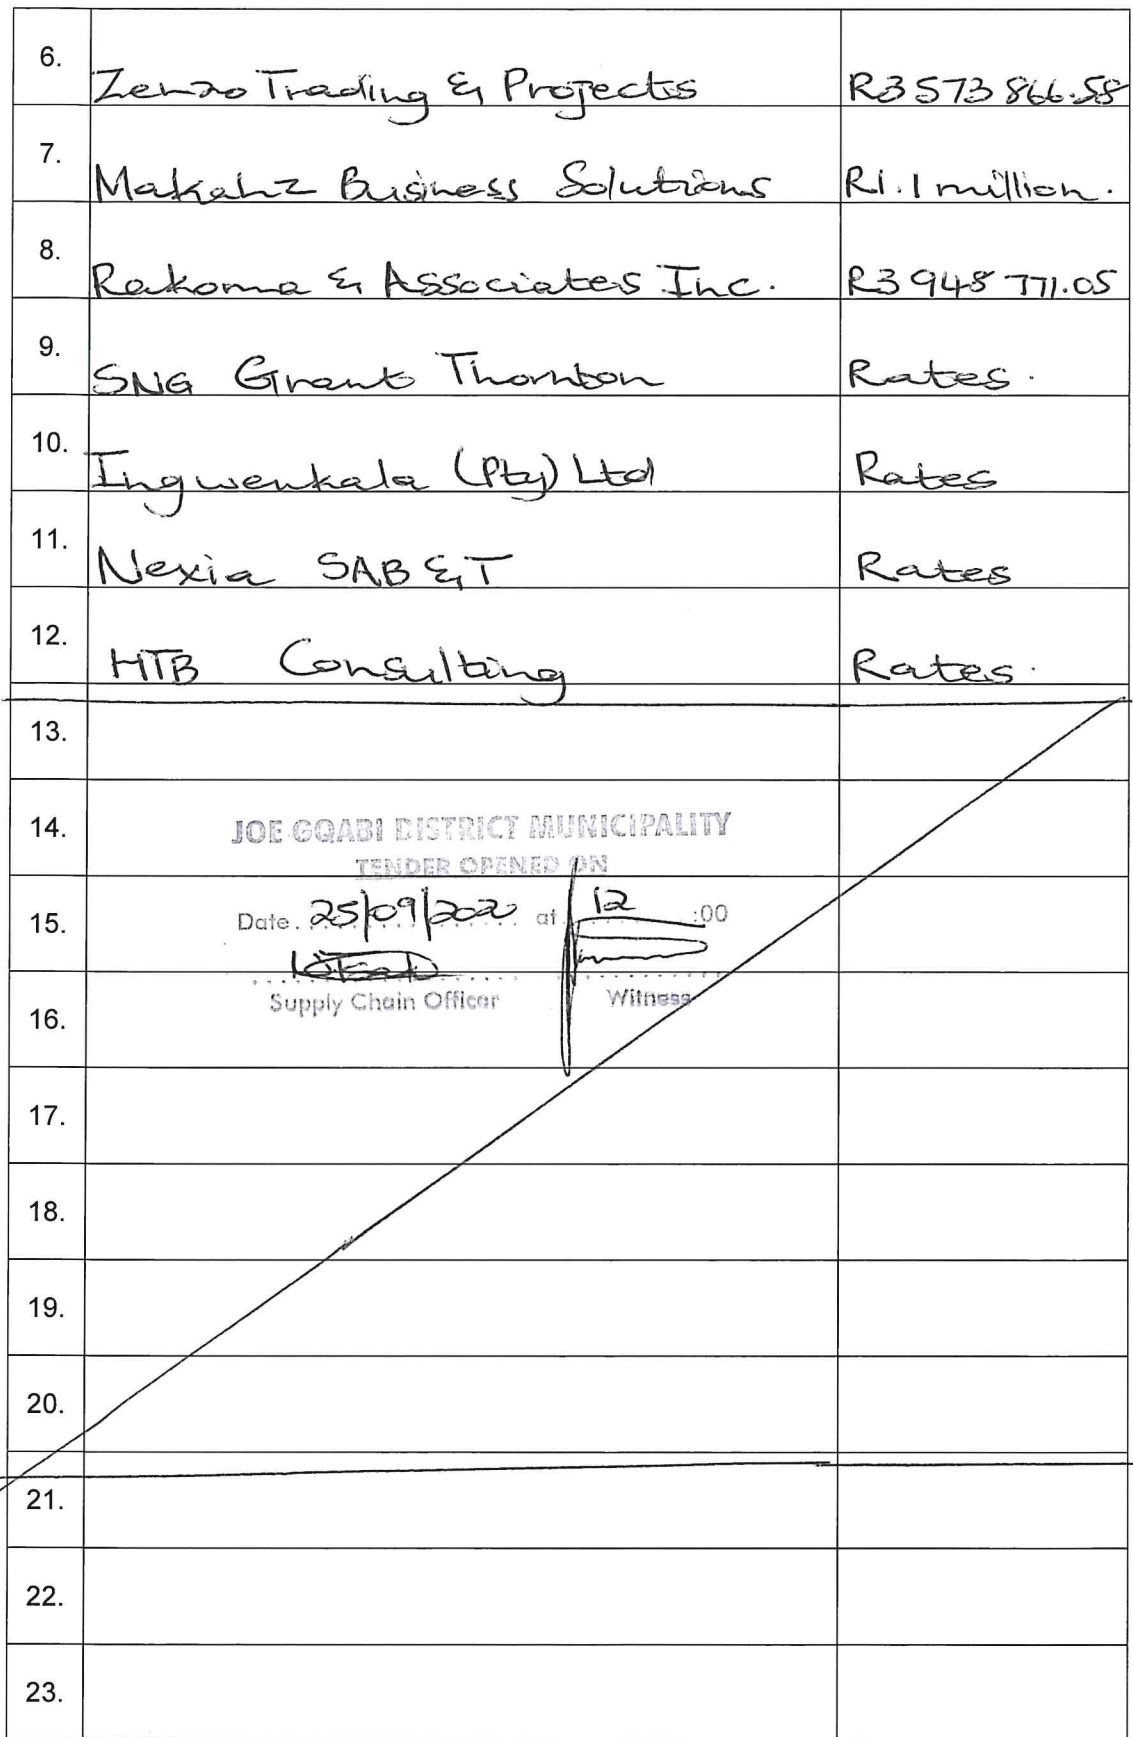 6. Zenzo Trading & Projects R3 573 866.58
7. Makahz Business Solutions R1.1 million.
8. Rakoma & Associates Inc. R3 948 771.05
9. SNG Grant Thornton Rates.
10. Ingwenkala (Pty) Ltd Rates
11. Nexia SAB&T Rates
12. HTB Consulting Rates.
13.
14. JOE GQABI DISTRICT MUNICIPALITY
TENDER OPENED ON
15. Date. 25/09/2020 at 12 :00
Supply Chain Officer Witness
16.
17.
18.
19.
20.
21.
22.
23.